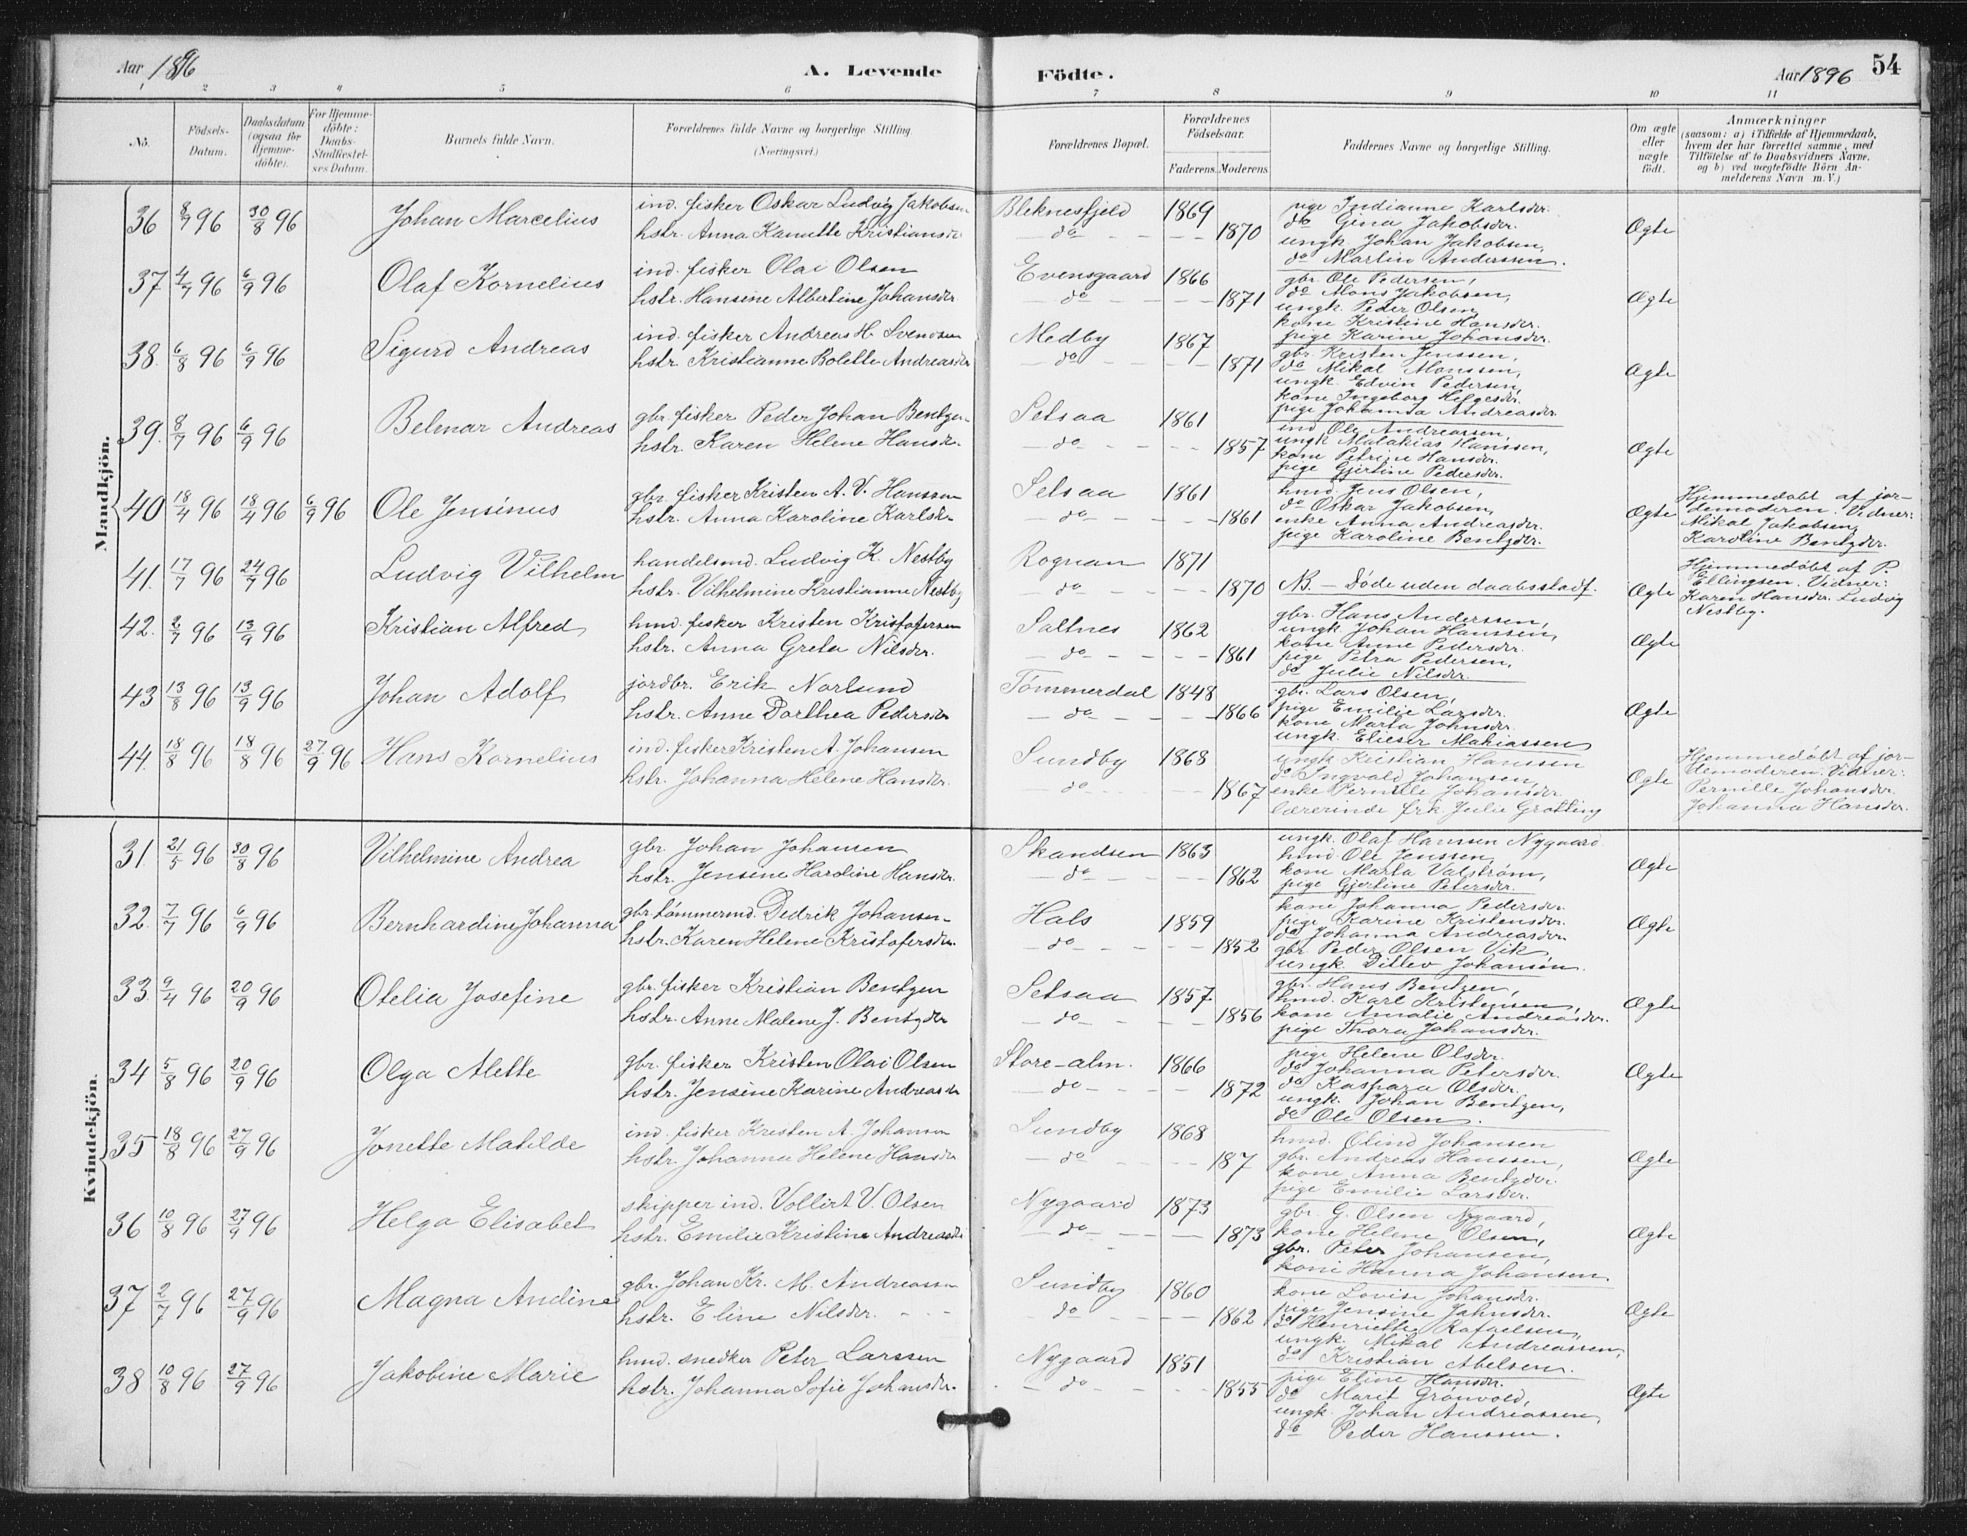 Aar 1896
A. Levende
Födte.
Aar 1896
54
1 2 3 4 5 6 7 8 9 10 11
No.
Födsels-Datum.
Daabsdatum (ogsaa for Hjemme-döbte).
For Hjemme-döbte: Daabs-Stadfæstel-ses Datum.
Barnets fulde Navn.
Forældrenes fulde Navne og borgerlige Stilling.
(Næringsvei.)
Forældrenes Bopæl.
Forældrenes Födselsaar.
Faderens. Moderens
Faddernes Navne og borgerlige Stilling.
Om ægte eller uægte födt.
Anmærkninger
(saasom: a) i Tilfælde af Hjemmedaab,
hvem der har forrettet samme, med
Tilföielse af to Daabsvidners Navne,
og b) ved uægtefödte Börn An-
melderens Navn m. V.)
Mandkjön.
36 8/7 96 30/8 96 Johan Marcelius
ind. fisker Oskar Ludvig Jakobsen
hstr. Anna Kanutte Kristiansdr
Bleknesfjeld 1869
do 1870
pige Indianna Karlsdr.
do Gina Jakobsdr.
ungk Johan Jakobsen,
do Martin Anderssen.
Ægte
37 4/7 96 6/9 96 Olaf Kornelius
ind. fisker Olai Olsen
hstr. Hansine Albertine Johansdr
Evensgaard 1866
do 1871
gbr. Ole Pedersen,
do Mons Jakobsen,
ungk. Peder Olsen
kone Kristine Hansdr.
pige Karine Johansdr.
Ægte
38. 6/8 96 6/9 96 Sigurd Andreas
ind. fisker Andreas H. Svendsen
hstr. Kristianne Bolette Andreasdr
Medby 1867
do 1871
gbr. Kristen Jenssen,
do Mikal Monssen,
ungk Edvin Pedersen,
kone Ingeborg Helgesdr.
pige Johanna Andreasdr.
Ægte
39. 8/7 96 6/9 96 Belmar Andreas
gbr. fisker Peder Johan Bentzen
hstr. Karen Helene Hansdr.
Setsaa 1861
do 1857
ind. Ole Andreassen,
ungk Malakias Hanssen,
kone Petrine Hansdr.
pige Gjertine Pedersdr.
Ægte
40 18/4 96 18/4 96 6/9 96 Ole Jensinus
gbr. fisker Kristen A. V. Hanssen
hstr. Anna Karoline Karlsdr.
Setsaa 1861
do 1861
hmd. Jens Olsen,
do Oskar Jakobsen,
enke Anna Andreasdr.
pige Karoline Bentzdr.
Ægte
Hjemmedøbt af jor-
demoderen. Vidner:
Mikal Jakobsen,
Karoline Bentzdr.
41. 17/7 96 24/7 96 Ludvig Vilhelm
handelsmd. Ludvig K. Nestby
hstr. Vilhelmine Kristianne Nestby
Rognan 1871
do 1870
NB – Døde uden daabsstadf.
Ægte
Hjemmedøbt af P.
Ellingsen. Vidner:
Karen Hansdr. Ludvig
Nestby.
42. 2/7 96 13/9 96 Kristian Alfred
hmd. fisker Kristen Kristofersen
hstr. Anna Greta Nilsdr.
Saltnes 1862
do 1861
gbr. Hans Anderssen,
ungk Johan Hanssen,
kone Anne Pedersdr.
pige Petra Pedersen,
do Julie Nilsdr.
Ægte
43 13/8 96 13/9 96 Johan Adolf
jordbr. Erik Norlund
hstr. Anne Dorthea Pedersdr
Tømmerdal 1848
do 1866
gbr. Lars Olsen,
pige Emilie Larsdr.
kone Marta Johnsdr.
ungk. Elieser Mahiassen
Ægte
44. 18/8 96 18/8 96 27/9 96 Hans Kornelius
ind. fisker Kristen A. Johansen
hstr. Johanna Helene Hansdr.
Sundby 1868
do 1867
ungk Kristian Hanssen
do Ingvald Johansen,
enke Pernille Johansdr
lærerinde frk. Julie Grotting
Ægte
Hjemmedøbt af jor-
demoderen. Vidner:
Pernille Johansdr.
Johanna Hansdr.
Kvindekjön.
31. 21/5 96 30/8 96 Vilhelmine Andrea
gbr. Johan Johansen
hstr. Jensine Haroline Hansdr.
Skandsen 1863
do 1862
ungk. Olaf Hanssen Nygaard
hmd. Ole Jenssen,
kone Marta Valstrøm,
pige Gjertine Petersdr.
Ægte
32. 7/7 96 6/9 96 Bernhardine Johanna
gbr. tømmermd. Dedrik Johansen
hstr. Karen Helene Kristofersdr.
Hals 1859
do 1852
kone Johanna Pedersdr
pige Karine Kristensdr.
do Johanna Andreasdr.
gbr Peder Olsen Vik
ungk. Ditlev Johansen.
Ægte
33. 9/4 96 20/9 96 Otelia Josefine
gbr. fisker Kristian Bentzen
hstr. Anne Malene J. Bentzdr
Setsaa 1857
do 1856
gbr. Hans Bentzen,
hmd. Karl Kristensen,
kone Amalie Andreasdr.
pige Thora Johansdr.
Ægte
34 5/8 96 20/9 96 Olga Alette
gbr. fisker Kristen Olai Olsen
hstr. Jensine Karine Andreasdr
Store-alm. 1866
do 1872
pige Helene Olsdr.
do Johanna Petersdr.
do Kaspara Olsdr.
ungk. Johan Bentzen,
do Ole Olsen.
Ægte
35 18/8 96 27/9 96 Jonette Matilde
ind. fisker Kristen A. Johansen
hstr. Johanna Helene Hansdr
Sundby 1868
do 187
hmd. Olind Johansen
gbr. Andreas Hanssen,
kone Anna Bentzdr.
pige Emilie Larsdr.
Ægte
36 10/8 96 27/9 96 Helga Elisabet
skipper ind. Vollirt V. Olsen
hstr. Emilie Kristine Andreasdr
Nygaard 1873
do 1873
gbr. G. Olsen Nygaard,
kone Helene Olsen,
gbr. Peter Johansen,
kone Hanna Johansen.
Ægte
37 2/7 96 27/9 96 Magna Andine
gbr. Johan Kr. M. Andreassen
hstr. Eline Nilsdr.
Sundby 1860
do 1862
kone Lovise Johansdr.
pige Jensine Jahnsdr.
do Henriette Rafaelsen,
ungk. Mikal Andreassen,
do Kristian Abelsen.
Ægte
38 10/8 96 27/9 96 Jakobine Marie
hmd. snedker Peter Larssen
hstr. Johanna Sofie Johansdr.
Nygaard 1851
do 1855
pige Eline Hansdr.
do Marit Grønvold,
ungk. Johan Andreassen,
do Peder Hanssen.
Ægte